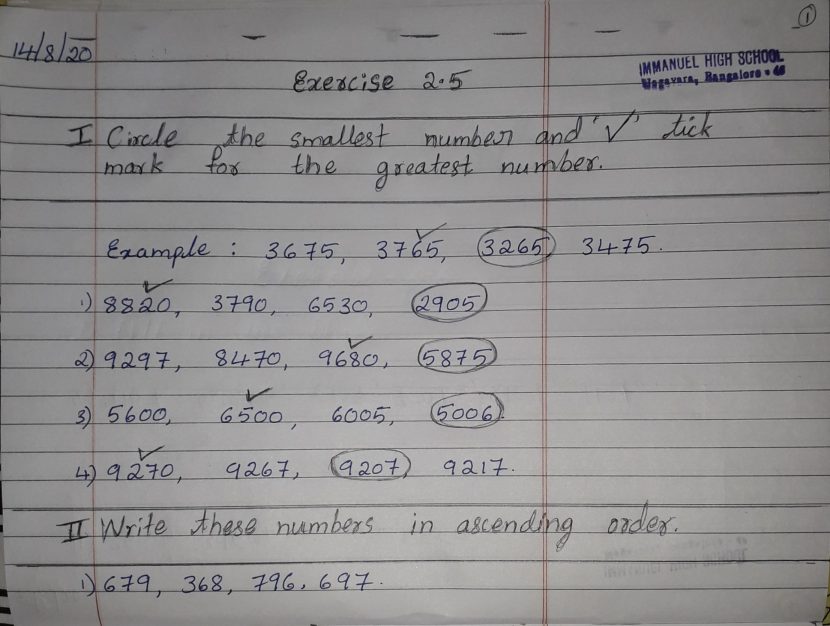 1
14/8/20
IMMANUEL HIGH SCHOOL
Nagavara, Bangalore - 45
Exercise 2.5
I Circle the smallest number and '√' tick
mark for the greatest number.
Example : 3675, 3765, 3265 3475.
1) 8820, 3790, 6530, 2905
2) 9297, 8470, 9680, 5875
3) 5600, 6500, 6005, 5006.
4) 9270, 9267, 9207, 9217.
II Write these numbers in ascending order.
1) 679, 368, 796, 697.